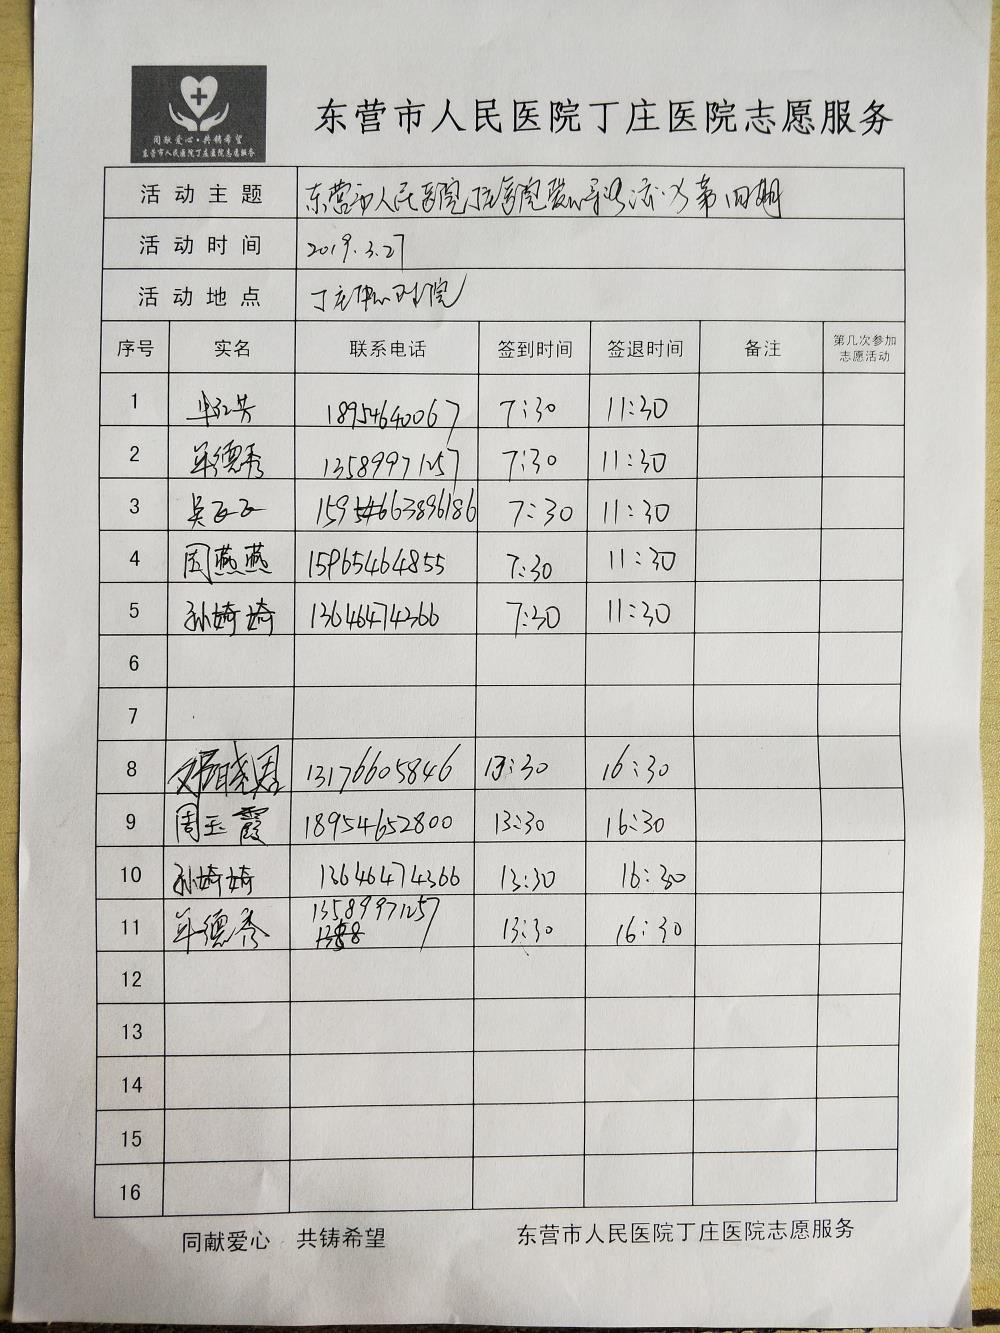 同献爱心·共铸希望
东营市人民医院丁庄医院志愿服务
东营市人民医院丁庄医院志愿服务
活动主题 东营市人民医院丁庄医院爱心导诊活动第四期
活动时间 2019.3.27
活动地点 丁庄中心医院
序号 实名 联系电话 签到时间 签退时间 备注 第几次参加志愿活动
1 18954640067 7:30 11:30
2 牟德秀 13589971257 7:30 11:30
3 吴 7:30 11:30
4 周燕燕 15965464855 7:30 11:30
5 孙婍婍 13646474366 7:30 11:30
6
7
8 邓晓君 13176605846 13:30 16:30
9 周玉霞 18954652800 13:30 16:30
10 孙婍婍 13646474366 13:30 16:30
11 牟德秀 13589971257 13:30 16:30
12
13
14
15
16
同献爱心 共铸希望 东营市人民医院丁庄医院志愿服务